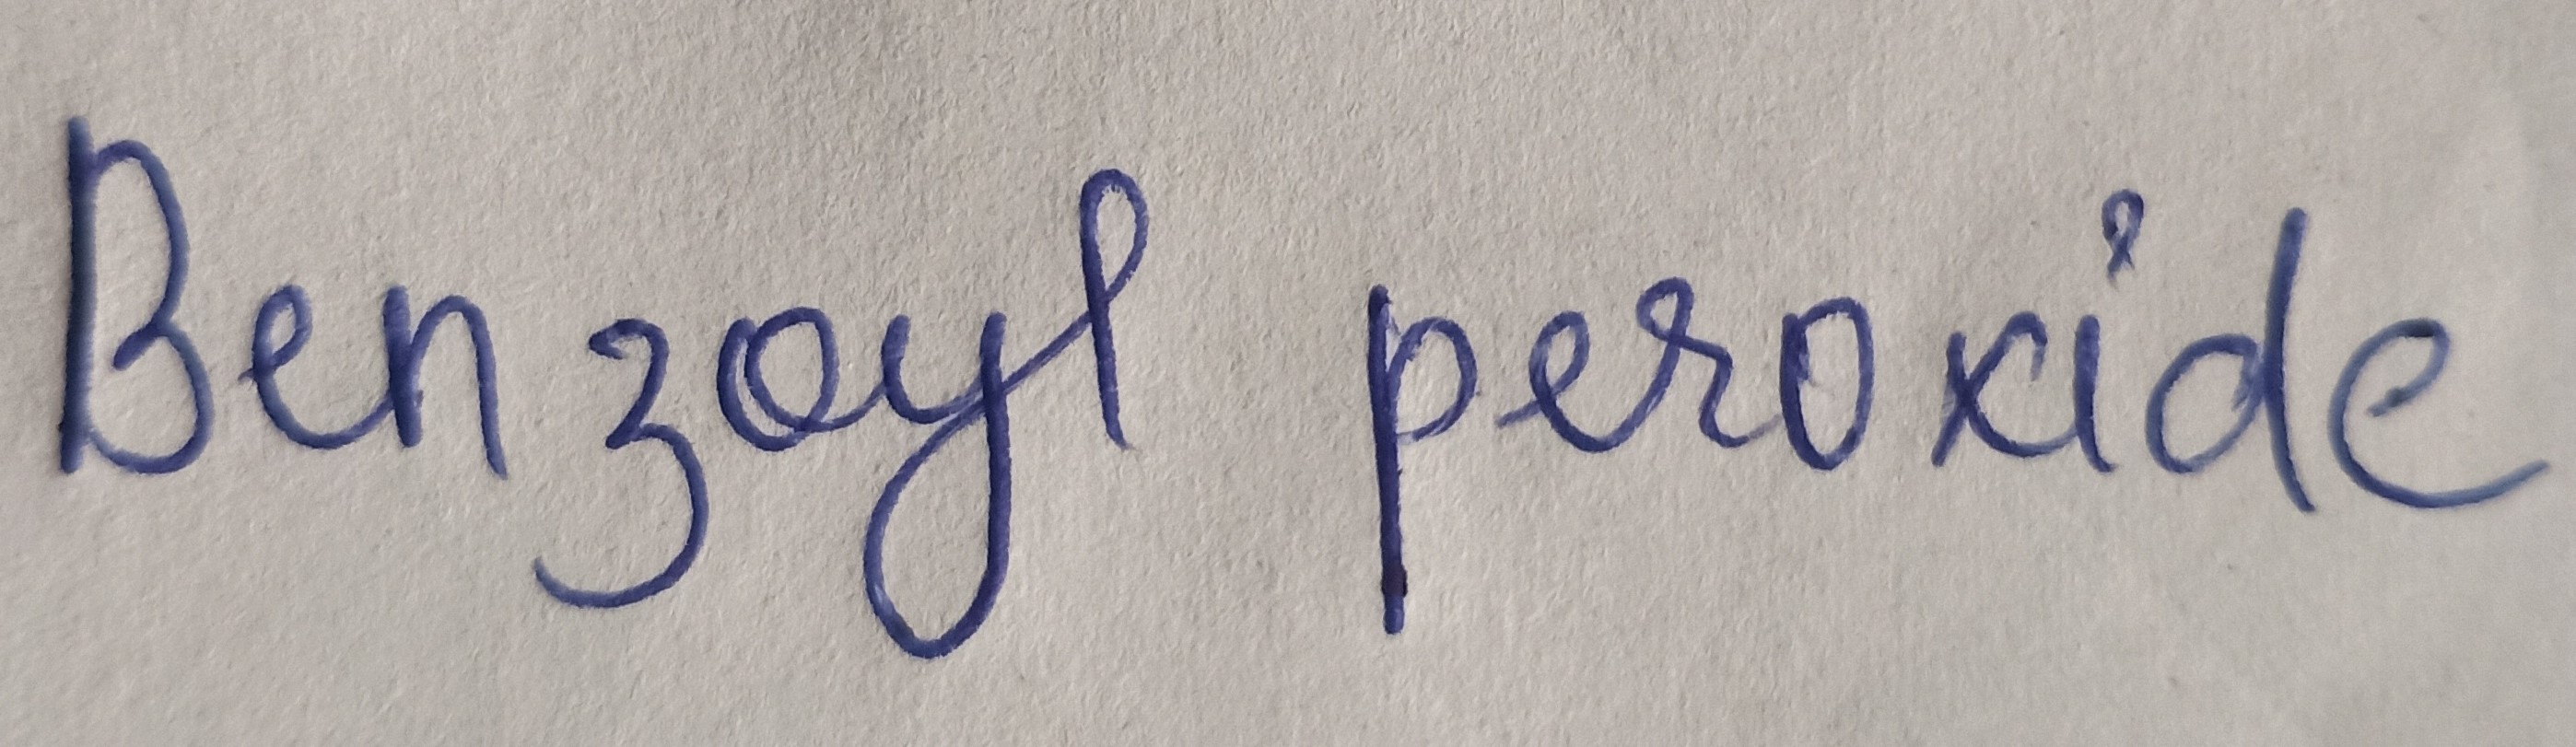 Benzoyl peroxide